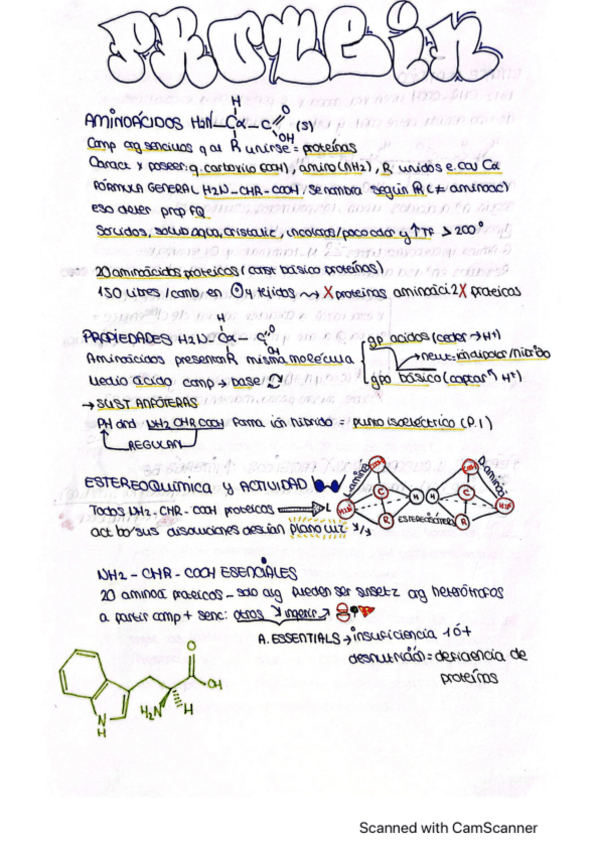 PROTEIN
AMINOÁCIDOS H2N-Cα-C
H
O
OH
R
(S)
Comp org sencillos q al unirse = proteínas
Caract x poseer: g. carboxilo (COOH), amino (NH2), R unidos e cov Cα
FÓRMULA GENERAL H2N-CHR-COOH. Se nombra según R (≠ aminoac)
eso deter prop FQ
Sólidos, solub agua, cristaliz, incoloros/poco color y ↑TF > 200°
20 aminoácidos proteicos (const básico proteínas)
150 libres/comb en y tejidos → X proteínas aminoáci 2X proteicos
PROPIEDADES H2N-Cα-C
H
O
OH
R
Aminoácidos presentan misma molécula
gp ácidos (ceder → H+)
neut = ión dipolar/híbrido
gpo básico (captar H+)
Medio ácido comp → base
→ SUST. ANFÓTERAS
PH dnd NH2 CHR COOH forma ión híbrido = punto isoeléctrico (P.I)
REGULAN
ESTEREOQUÍMICA y ACTIVIDAD
Todos NH2-CHR-COOH proteicos → L
act bo/sus disoluciones desvían plano luz
L amino
D aminoá
COOH
C
H
H2N
R
COOH
C
H
H2N
R
ESTEREOISÓMEROS
NH2-CHR-COOH ESENCIALES
20 aminoá proteicos - solo alg pueden ser sintetz org heterótrofos
a partir comp + senc: otros ingerir →
A. ESSENTIALS → insuficiencia 1ó+
desnutrición = deficiencia de
proteínas
O
OH
H2N
H
N
H
Scanned with CamScanner